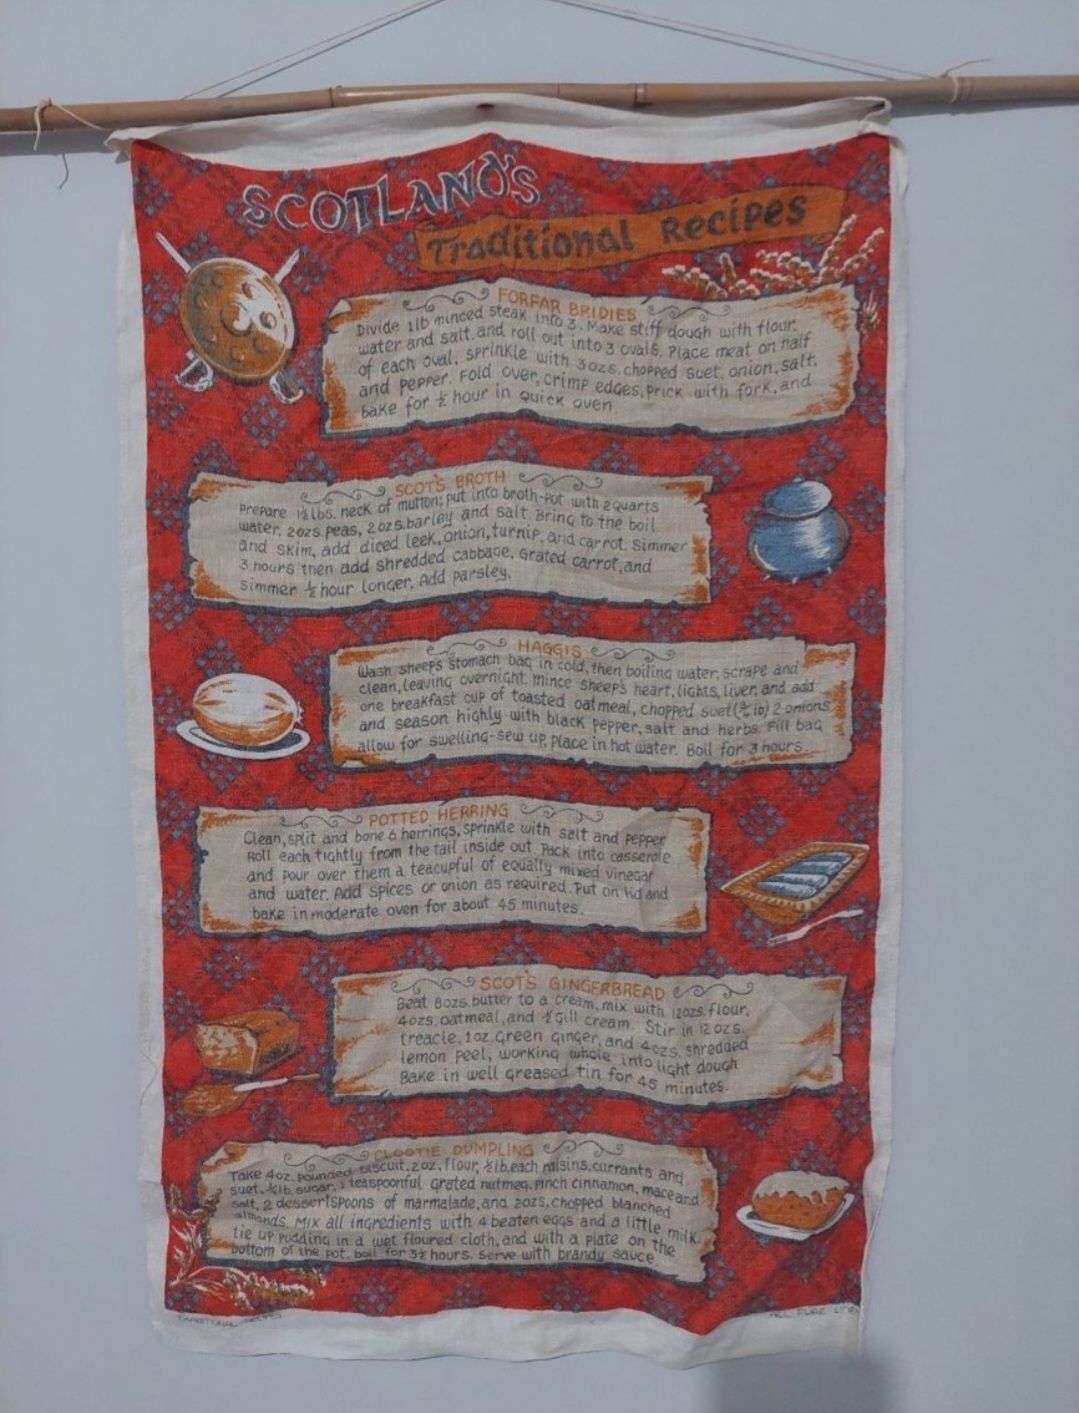 SCOTLAND'S
Traditional Recipes
FORFAR BRIDIES
Divide 1lb minced steak into 3. Make stiff dough with flour,
water and salt, and roll out into 3 ovals. Place meat on half
of each oval, sprinkle with 3ozs. chopped suet, onion, salt,
and pepper. Fold over, crimp edges, prick with fork, and
bake for ½ hour in quick oven.
SCOT'S BROTH
Prepare 1½lbs. neck of mutton; put into broth-pot with 2quarts
water, 2ozs. peas, 2ozs. barley and salt. Bring to the boil
and skim, add diced leek, onion, turnip, and carrot. Simmer
3 hours then add shredded cabbage, grated carrot, and
simmer ½ hour longer. Add parsley.
HAGGIS
Wash sheep's stomach bag in cold, then boiling water, scrape and
clean, leaving overnight. Mince sheep's heart, lights, liver, and add
one breakfast cup of toasted oatmeal, chopped suet (¾ lb) 2 onions
and season highly with black pepper, salt and herbs. Fill bag
allow for swelling-sew up, place in hot water. Boil for 3 hours.
POTTED HERRING
Clean, split and bone 6 herrings, sprinkle with salt and pepper
Roll each tightly from the tail inside out. Pack into casserole
and pour over them a teacupful of equally mixed vinegar
and water. Add spices or onion as required. Put on lid and
bake in moderate oven for about 45 minutes.
SCOT'S GINGERBREAD
Beat 8ozs. butter to a cream, mix with 12ozs. flour,
4ozs. oatmeal, and ½ gill cream. Stir in 12 ozs.
treacle, 1oz. green ginger, and 4ozs. shredded
lemon peel, working whole into light dough
Bake in well greased tin for 45 minutes.
CLOOTIE DUMPLING
Take 4oz. pounded biscuit, 2oz. flour, ½lb. each raisins, currants and
suet, ¼lb. sugar, 1 teaspoonful grated nutmeg, pinch cinnamon, mace and
salt, 2 dessertspoons of marmalade, and 2ozs. chopped blanched
almonds. Mix all ingredients with 4 beaten eggs and a little milk
tie up pudding in a wet floured cloth, and with a plate on the
bottom of the pot, boil for 3½ hours. Serve with brandy sauce
TRADITIONAL RECIPES
ALL PURE